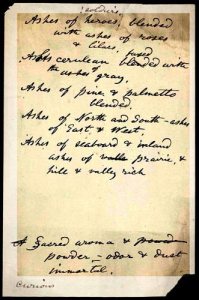 soldiers
Ashes of heroes, blended
with ashes of roses
& lilac,
fused
Ashes cerulean blended with
the ashes of gray,
Ashes of pine & palmetto
blended.
Ashes of North and South – ashes
of East, & West,
Ashes of seaboard & inland
ashes of prairie, &
hill & valley rich
A Sacred aroma &
powder – odor & dust
immortal.
Curious